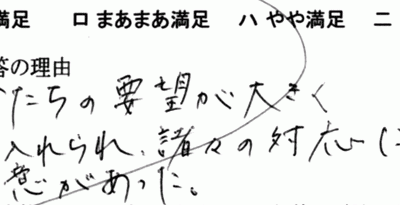 満足 ロ まあまあ満足 ハ やや満足 ニ
答の理由
たちの要望が大きく
入れられ、諸々の対応に
意があった。